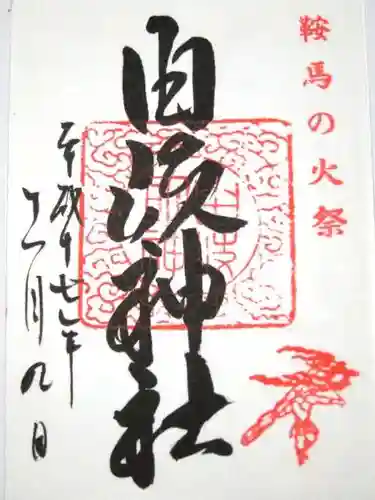 鞍馬の火祭
由岐神社
平成十七年
十一月九日